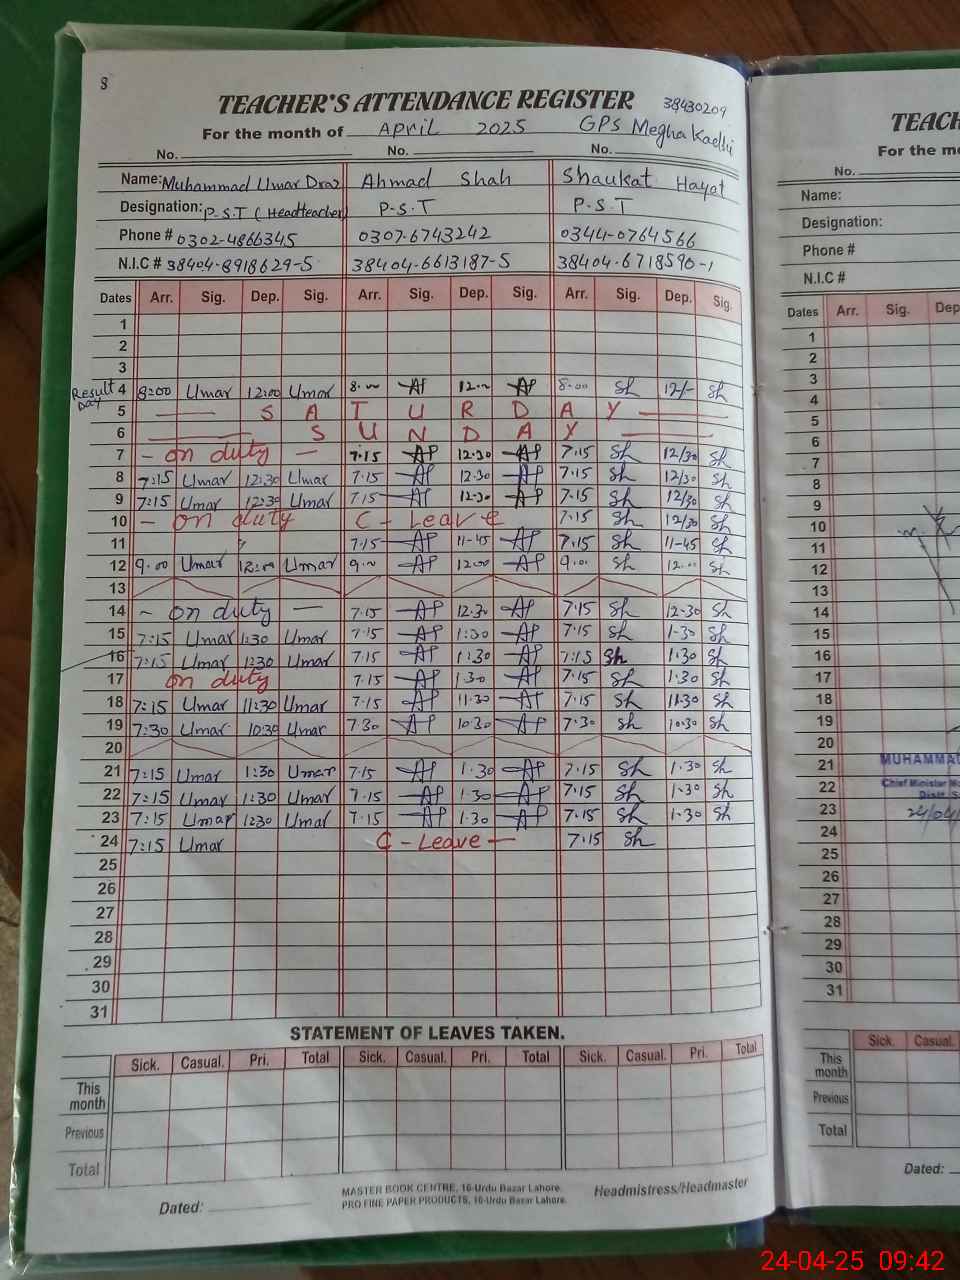 8
TEACHER'S ATTENDANCE REGISTER 38430209
For the month of April 2025 GPS Megha Kadhi
No. No. No.
Name: Muhammad Umar Draz Ahmad Shah Shaukat Hayat
Designation: P.S.T (Headteacher) P.S.T P.S.T
Phone # 0302-4866345 0307-6743242 0344-0764566
N.I.C # 38404-8918629-5 38404-6613187-5 38404-6718590-1
Dates Arr. Sig. Dep. Sig. Arr. Sig. Dep. Sig. Arr. Sig. Dep. Sig.
1
2
3
Result Day 4 8:00 Umar 12:00 Umar 8.00 12.00 8.00 Sh 12/- Sh
5 SATURDAY
6 SUNDAY
7 - on duty - 7.15 12.30 7.15 Sh 12/30 Sh
8 7:15 Umar 12:30 Umar 7.15 12.30 7.15 Sh 12/30 Sh
9 7:15 Umar 12:30 Umar 7.15 12.30 7.15 Sh 12/30 Sh
10 - on duty C - Leave 7.15 Sh 12/30 Sh
11 7.15 11-45 7.15 Sh 11-45 Sh
12 9.00 Umar 12:00 Umar 9.00 12.00 9.00 Sh 12.00 Sh
13
14 - on duty - 7.15 12.30 7.15 Sh 12.30 Sh
15 7:15 Umar 1:30 Umar 7.15 1:30 7.15 Sh 1.30 Sh
16 7:15 Umar 1:30 Umar 7.15 1:30 7:15 Sh 1.30 Sh
17 on duty 7.15 1.30 7.15 Sh 1.30 Sh
18 7:15 Umar 11:30 Umar 7.15 11.30 7.15 Sh 11.30 Sh
19 7:30 Umar 10:30 Umar 7.30 10.30 7.30 Sh 10.30 Sh
20
21 7:15 Umar 1:30 Umar 7.15 1.30 7.15 Sh 1.30 Sh
22 7:15 Umar 1:30 Umar 7.15 1.30 7.15 Sh 1.30 Sh
23 7:15 Umar 1:30 Umar 7.15 1.30 7.15 Sh 1.30 Sh
24 7:15 Umar C - Leave - 7.15 Sh
25
26
27
28
29
30
31
STATEMENT OF LEAVES TAKEN.
Sick. Casual. Pri. Total Sick. Casual. Pri. Total Sick. Casual. Pri. Total
This month
Previous
Total
Dated:
MASTER BOOK CENTRE, 16-Urdu Bazar Lahore.
PRO FINE PAPER PRODUCTS, 16-Urdu Bazar Lahore.
Headmistress/Headmaster
TEACH
For the mo
No.
Name:
Designation:
Phone #
N.I.C #
Dates Arr. Sig. Dep
1
2
3
4
5
6
7
8
9
10
11
12
13
14
15
16
17
18
19
20
21 MUHAMMA
22 Chief Minister
23 24/04/
24
25
26
27
28
29
30
31
Sick. Casual.
This month
Previous
Total
Dated:
24-04-25 09:42